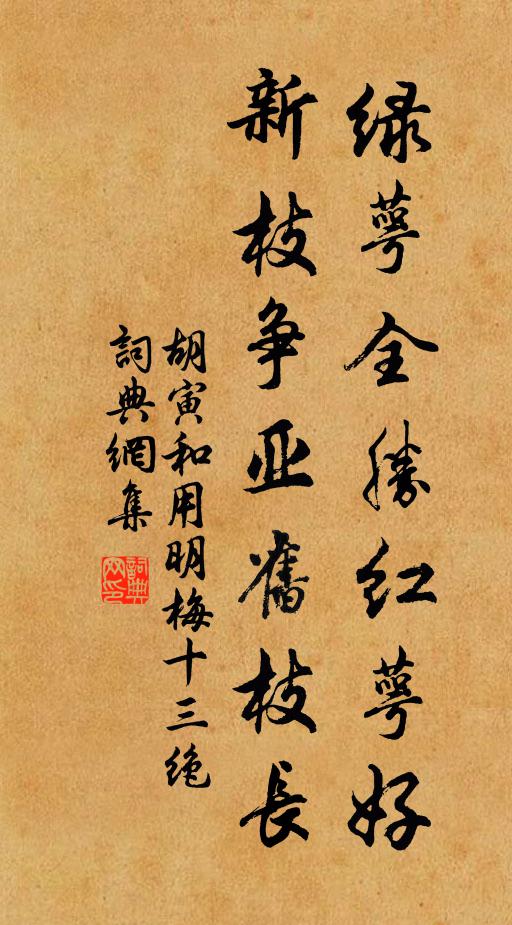 绿萼全勝红萼好
新枝争亚舊枝長
胡寅和用明梅十三绝
詞典網集
詞典网印